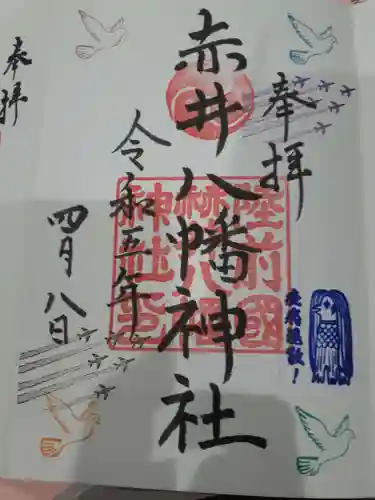 奉拝
赤井八幡神社
陸前國
赤井八幡
神社璽
令和五年
四月八日
疫病退散!
奉拝